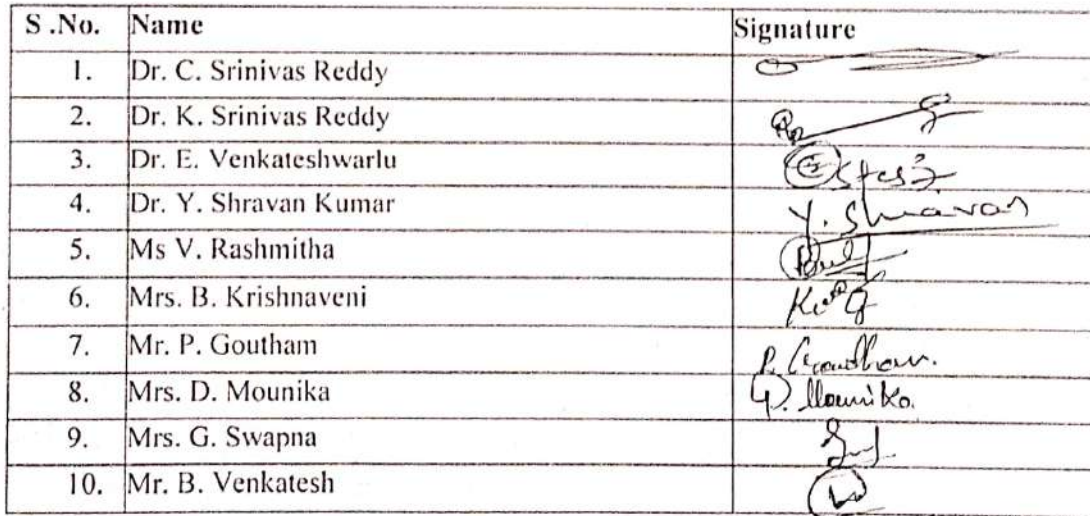 S .No. Name Signature
1. Dr. C. Srinivas Reddy
2. Dr. K. Srinivas Reddy
3. Dr. E. Venkateshwarlu
4. Dr. Y. Shravan Kumar Y. Shravan
5. Ms V. Rashmitha
6. Mrs. B. Krishnaveni
7. Mr. P. Goutham P. Goutham.
8. Mrs. D. Mounika D. Mounika.
9. Mrs. G. Swapna
10. Mr. B. Venkatesh